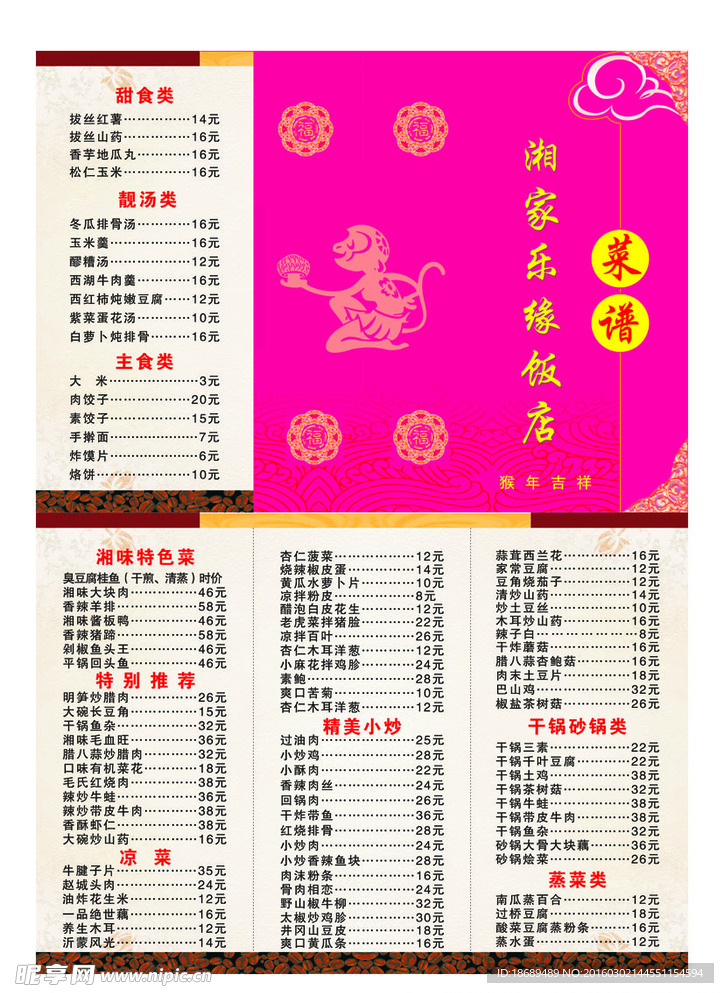 甜食类
拔丝红薯··············14元
拔丝山药··············16元
香芋地瓜丸············16元
松仁玉米··············16元
靓汤类
冬瓜排骨汤············16元
玉米羹················16元
醪糟汤················12元
西湖牛肉羹············16元
西红柿炖嫩豆腐······12元
紫菜蛋花汤············10元
白萝卜炖排骨·········16元
主食类
大 米·····················3元
肉饺子···················20元
素饺子···················15元
手擀面·····················7元
炸馍片·····················6元
烙饼······················10元
湘家乐缘饭店
菜谱
猴年吉祥
湘味特色菜
臭豆腐桂鱼(干煎、清蒸)时价
湘味大块肉··············46元
香辣羊排················58元
湘味酱板鸭··············46元
香辣猪蹄················58元
剁椒鱼头王··············46元
平锅回头鱼··············46元
特别推荐
明笋炒腊肉··············26元
大碗长豆角··············15元
干锅鱼杂················32元
湘味毛血旺··············36元
腊八蒜炒腊肉············32元
口味有机菜花············18元
毛氏红烧肉··············38元
辣炒牛蛙················36元
辣炒带皮牛肉············38元
香酥虾仁················38元
大碗炒山药··············16元
凉 菜
牛腱子片················35元
赵城头肉················24元
油炸花生米··············12元
一品绝世藕··············16元
养生木耳················12元
沂蒙风光···················14元
杏仁菠菜··················12元
烧辣椒皮蛋················14元
黄瓜水萝卜片·············10元
凉拌粉皮··················8元
醋泡白皮花生·············12元
老虎菜拌猪脸·············22元
凉拌百叶··················26元
杏仁木耳洋葱·············12元
小麻花拌鸡胗·············24元
素鲍······················28元
爽口苦菊··················10元
杏仁木耳洋葱·············12元
精美小炒
过油肉····················25元
小炒鸡····················28元
小酥肉····················22元
香辣肉丝··················24元
回锅肉····················26元
干炸带鱼··················36元
红烧排骨··················28元
小炒肉····················24元
小炒香辣鱼块·············28元
肉沫粉条··················16元
骨肉相恋··················24元
野山椒牛柳················32元
太椒炒鸡胗················30元
井冈山豆皮················18元
爽口黄瓜条················16元
蒜茸西兰花················16元
家常豆腐··················12元
豆角烧茄子················12元
清炒山药··················14元
炒土豆丝··················10元
木耳炒山药················16元
辣子白····················8元
干炸蘑菇··················16元
腊八蒜杏鲍菇·············16元
肉末土豆片················18元
巴山鸡····················32元
椒盐茶树菇················26元
干锅砂锅类
干锅三素··················22元
干锅千叶豆腐·············22元
干锅土鸡··················38元
干锅茶树菇················32元
干锅牛蛙··················38元
干锅带皮牛肉·············38元
干锅鱼杂··················32元
砂锅大骨大块藕··········36元
砂锅烩菜··················26元
蒸菜类
南瓜蒸百合················12元
过桥豆腐··················18元
酸菜豆腐蒸粉条··········16元
蒸水蛋····················12元
昵享网 www.nipic.cn
ID:18689489 NO:20160302144551154594